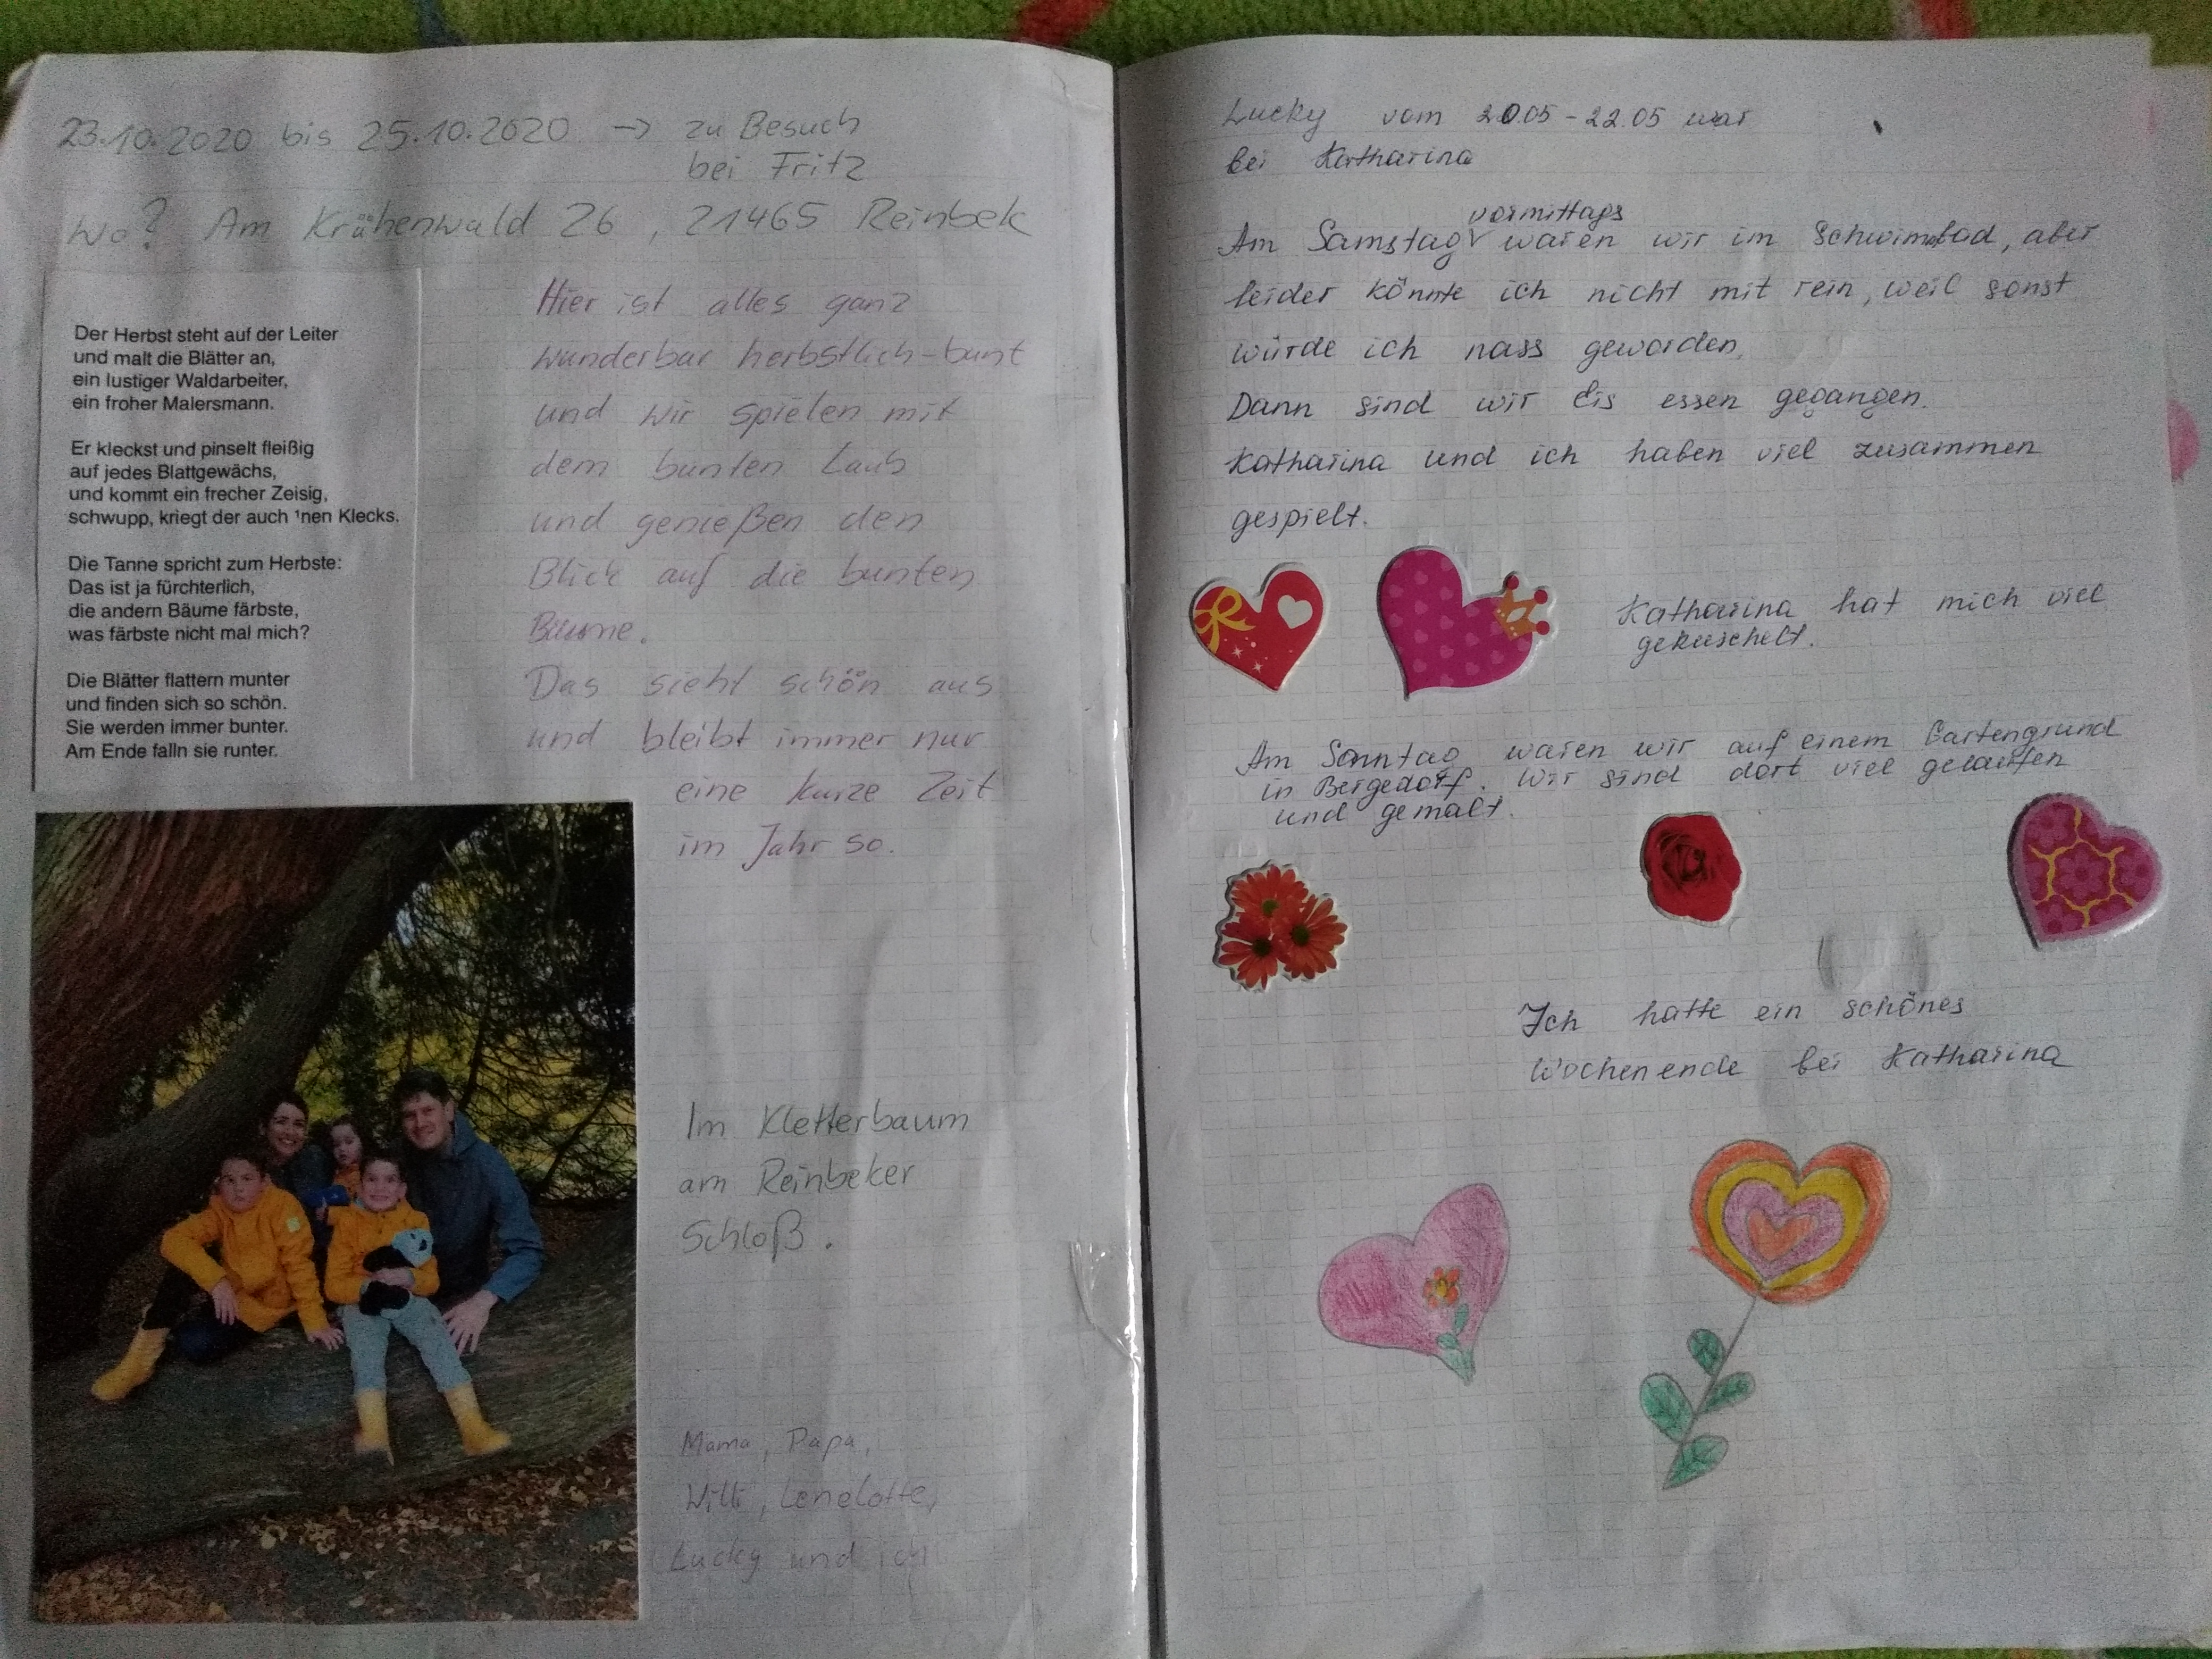 23.10.2020 bis 25.10.2020 → zu Besuch
bei Fritz
Wo? Am Krähenwald 26, 21465 Reinbek
Der Herbst steht auf der Leiter
und malt die Blätter an,
ein lustiger Waldarbeiter,
ein froher Malersmann.
Er kleckst und pinselt fleißig
auf jedes Blattgewächs,
und kommt ein frecher Zeisig,
schwupp, kriegt der auch 'nen Klecks.
Die Tanne spricht zum Herbste:
Das ist ja fürchterlich,
die andern Bäume färbste,
was färbste nicht mal mich?
Die Blätter flattern munter
und finden sich so schön.
Sie werden immer bunter.
Am Ende falln sie runter.
Hier ist alles ganz
wunderbar herbstlich-bunt
und wir spielen mit
dem bunten Laub
und genießen den
Blick auf die bunten
Bäume.
Das sieht schön aus
und bleibt immer nur
eine kurze Zeit
im Jahr so.
Im Kletterbaum
am Reinbeker
Schloß.
Mama, Papa,
Willi, Lenelotte,
Lucky und ich
Lucky vom 20.05 - 22.05 war
bei Katharina
vormittags
Am Samstag waren wir im Schwimbad, aber
leider könnte ich nicht mit rein, weil sonst
würde ich nass geworden.
Dann sind wir Eis essen gegangen.
Katharina und ich haben viel zusammen
gespielt.
Katharina hat mich viel
gekuschelt.
Am Sonntag waren wir auf einem Gartengrund
in Bergedorf. Wir sind dort viel gelaufen
und gemalt.
Ich hatte ein schönes
Wochenende bei Katharina